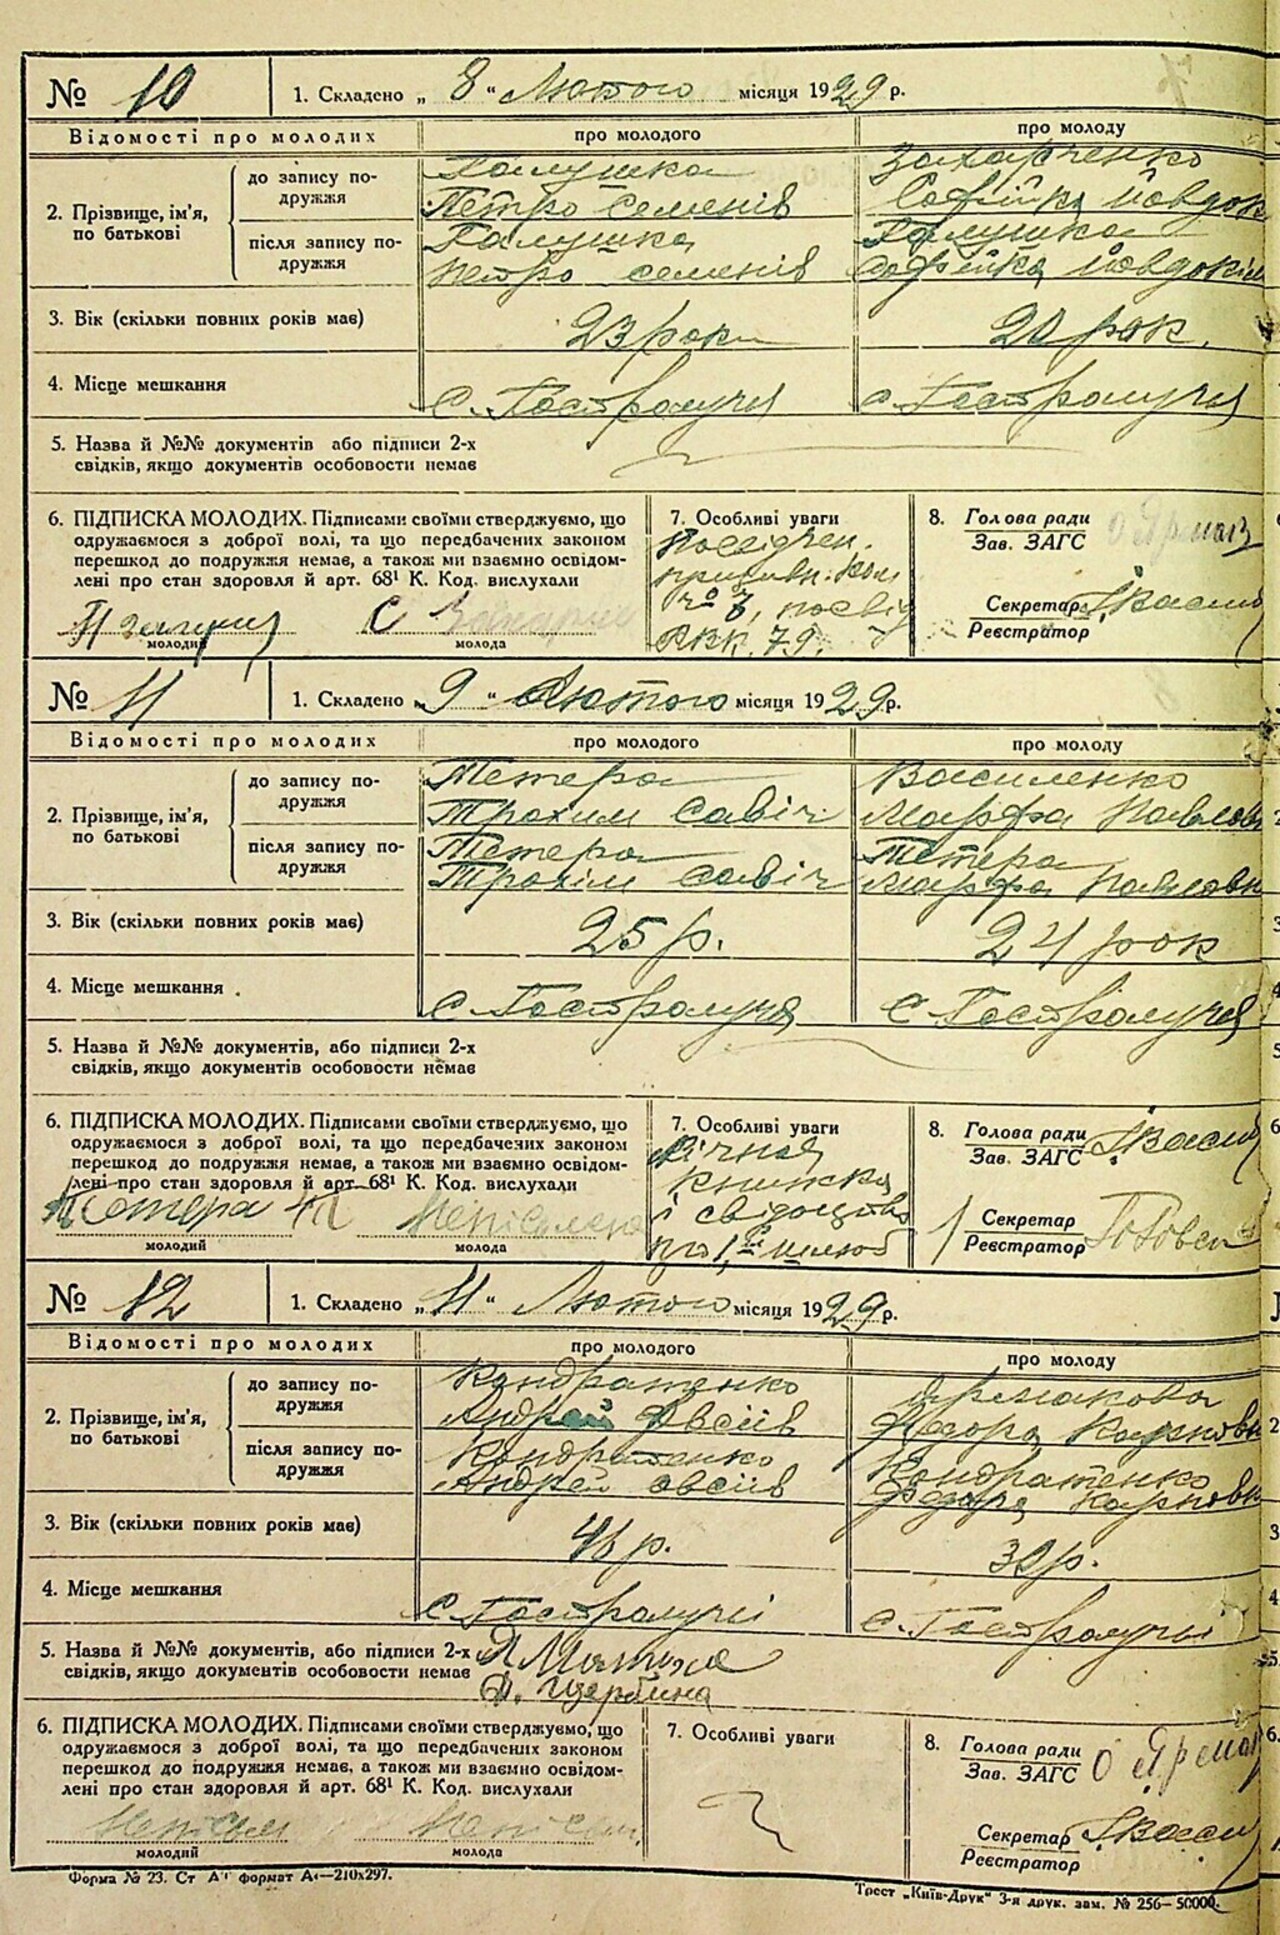 № 10 1. Складено „ 8 “ Лютого місяця 1929 р.
Відомості про молодих про молодого про молоду
2. Прізвище, ім'я, по батькові
до запису подружжя
Галушка
Петро Семенів
Захарченко
Софійка Йовдок
після запису подружжя
Галушка
Петро Семенів
Галушка
Софійка Йовдокім
3. Вік (скільки повних років має) 23 роки 20 рок.
4. Місце мешкання с. Гостролуччя с. Гостролуччя
5. Назва й №№ документів або підписи 2-х
свідків, якщо документів особовости немає
6. ПІДПИСКА МОЛОДИХ. Підписами своїми стверджуємо, що
одружаємося з доброї волі, та що передбачених законом
перешкод до подружжя немає, а також ми взаємно освідом-
лені про стан здоровля й арт. 68¹ К. Код. вислухали
молодий
С
молода
7. Особливі уваги
Посвідчен.
призивн. Ком
№ 7, посвід
РВК. 79.
8. Голова ради
Зав. ЗАГС
О Ярмак
Секретар
Реєстратор
№ 11 1. Складено „ 9 “ Лютого місяця 1929 р.
Відомості про молодих про молодого про молоду
2. Прізвище, ім'я, по батькові
до запису подружжя
Тетера
Трохим Савіч
Василенко
Марфа Павловн
після запису подружжя
Тетера
Трохім Савіч
Тетера
Марфа Павловн
3. Вік (скільки повних років має) 25 р. 24 рок
4. Місце мешкання с. Гостролуччя с. Гостролуччя
5. Назва й №№ документів, або підписи 2-х
свідків, якщо документів особовости немає
6. ПІДПИСКА МОЛОДИХ. Підписами своїми стверджуємо, що
одружаємося з доброї волі, та що передбачених законом
перешкод до подружжя немає, а також ми взаємно освідом-
лені про стан здоровля й арт. 68¹ К. Код. вислухали
Тетера
молодий
молода
7. Особливі уваги
Вічная
книжка
і свідоцтво
про 1 шлюб
8. Голова ради
Зав. ЗАГС
Секретар
Реєстратор
№ 12 1. Складено „ 11 “ Лютого місяця 1929 р.
Відомості про молодих про молодого про молоду
2. Прізвище, ім'я, по батькові
до запису подружжя
Кондратенко
Андрей Овсіїв
Ярмакова
Федора Карповн
після запису подружжя
Кондратенко
Андрей Овсіїв
Кондратенко
Федора Карповн
3. Вік (скільки повних років має) 46 р. 30 р.
4. Місце мешкання с. Гостролуччі с. Гостролуччі
5. Назва й №№ документів, або підписи 2-х
свідків, якщо документів особовости немає
Щербина
6. ПІДПИСКА МОЛОДИХ. Підписами своїми стверджуємо, що
одружаємося з доброї волі, та що передбачених законом
перешкод до подружжя немає, а також ми взаємно освідом-
лені про стан здоровля й арт. 68¹ К. Код. вислухали
молодий
молода
7. Особливі уваги
8. Голова ради
Зав. ЗАГС
О Ярмак
Секретар
Реєстратор
Форма № 23. Ст А4 формат А4—210х297.
Трест „Київ-Друк“ 3-я друк. зам. № 256—50000.